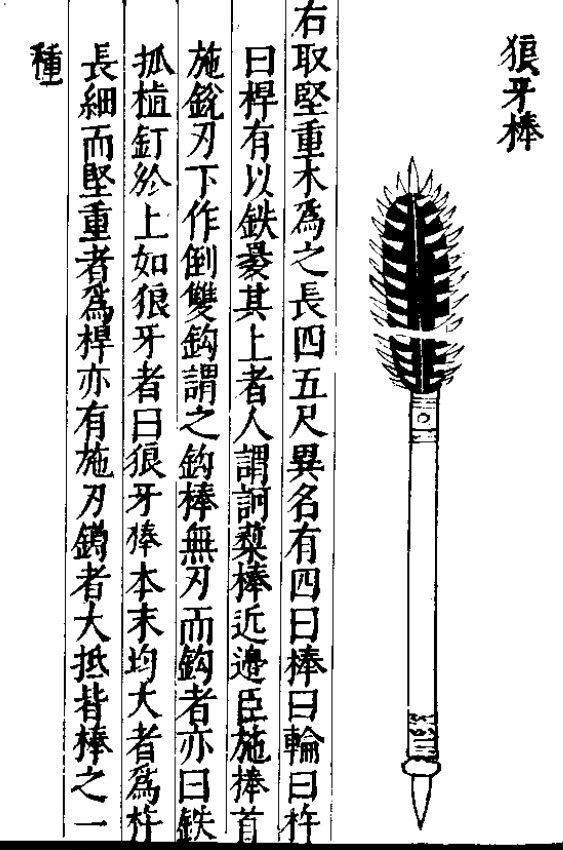 狼牙棒
右取堅重木爲之長四五尺異名有四曰棒曰輪曰杵
曰桿有以鉄褁其上者人謂訶藜棒近邊臣施棒首
施銳刃下作倒雙鈎謂之鈎棒無刃而鈎者亦曰鉄
抓植釘於上如狼牙者曰狼牙棒本末均大者爲杵
長細而堅重者爲桿亦有施刃鐏者大抵皆棒之一
種